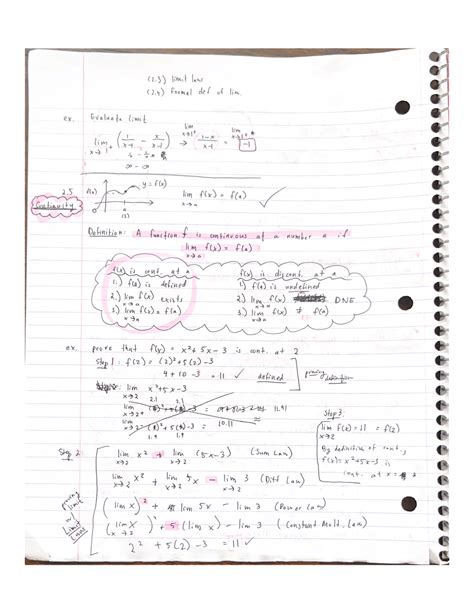 (2.3) limit law
(2.4) formal def of lim.
ex. Evaluate limit
lim x→1+ (1/x-1 - x/x-1) → lim x→1+ 1-x/x-1 = lim x→1+ -1
∞ - ∞
2.5
Continuity
f(x) y = f(x)
lim x→a f(x) = f(a) ✓
a
Definition: A function f is continuous at a number a if
lim x→a f(x) = f(a)
f(x) is cont. at a
1.) f(a) is defined
2.) lim x→a f(x) exists
3.) lim x→a f(x) = f(a)
f(x) is discont. at a
1.) f(a) is undefined
2.) lim x→a f(x) DNE
3.) lim x→a f(x) ≠ f(a)
ex. prove that f(x) = x²+5x-3 is cont. at 2
Step 1: f(2) = (2)²+5(2)-3
4+10-3 = 11 ✓ defined
proving definition
lim x→2 x²+5x-3
2.1 2.1
= 11.91
1.9 1.9
= 10.11
Step 3:
lim x→2 f(x) = 11 = f(2)
By definition of cont.,
f(x) = x²+5x-3 is
cont. at x = 2
Step 2:
proving limit w/ limit laws
lim x→2 x² + lim x→2 (5x-3) (Sum Law)
lim x→2 x² + lim x→2 5x - lim x→2 3 (Diff Law)
(lim x)² + lim 5x - lim 3 (Power Law)
(lim x→2 x)² + 5 (lim x) - lim 3 (Constant Mult. Law)
2² + 5(2) - 3 = 11 ✓